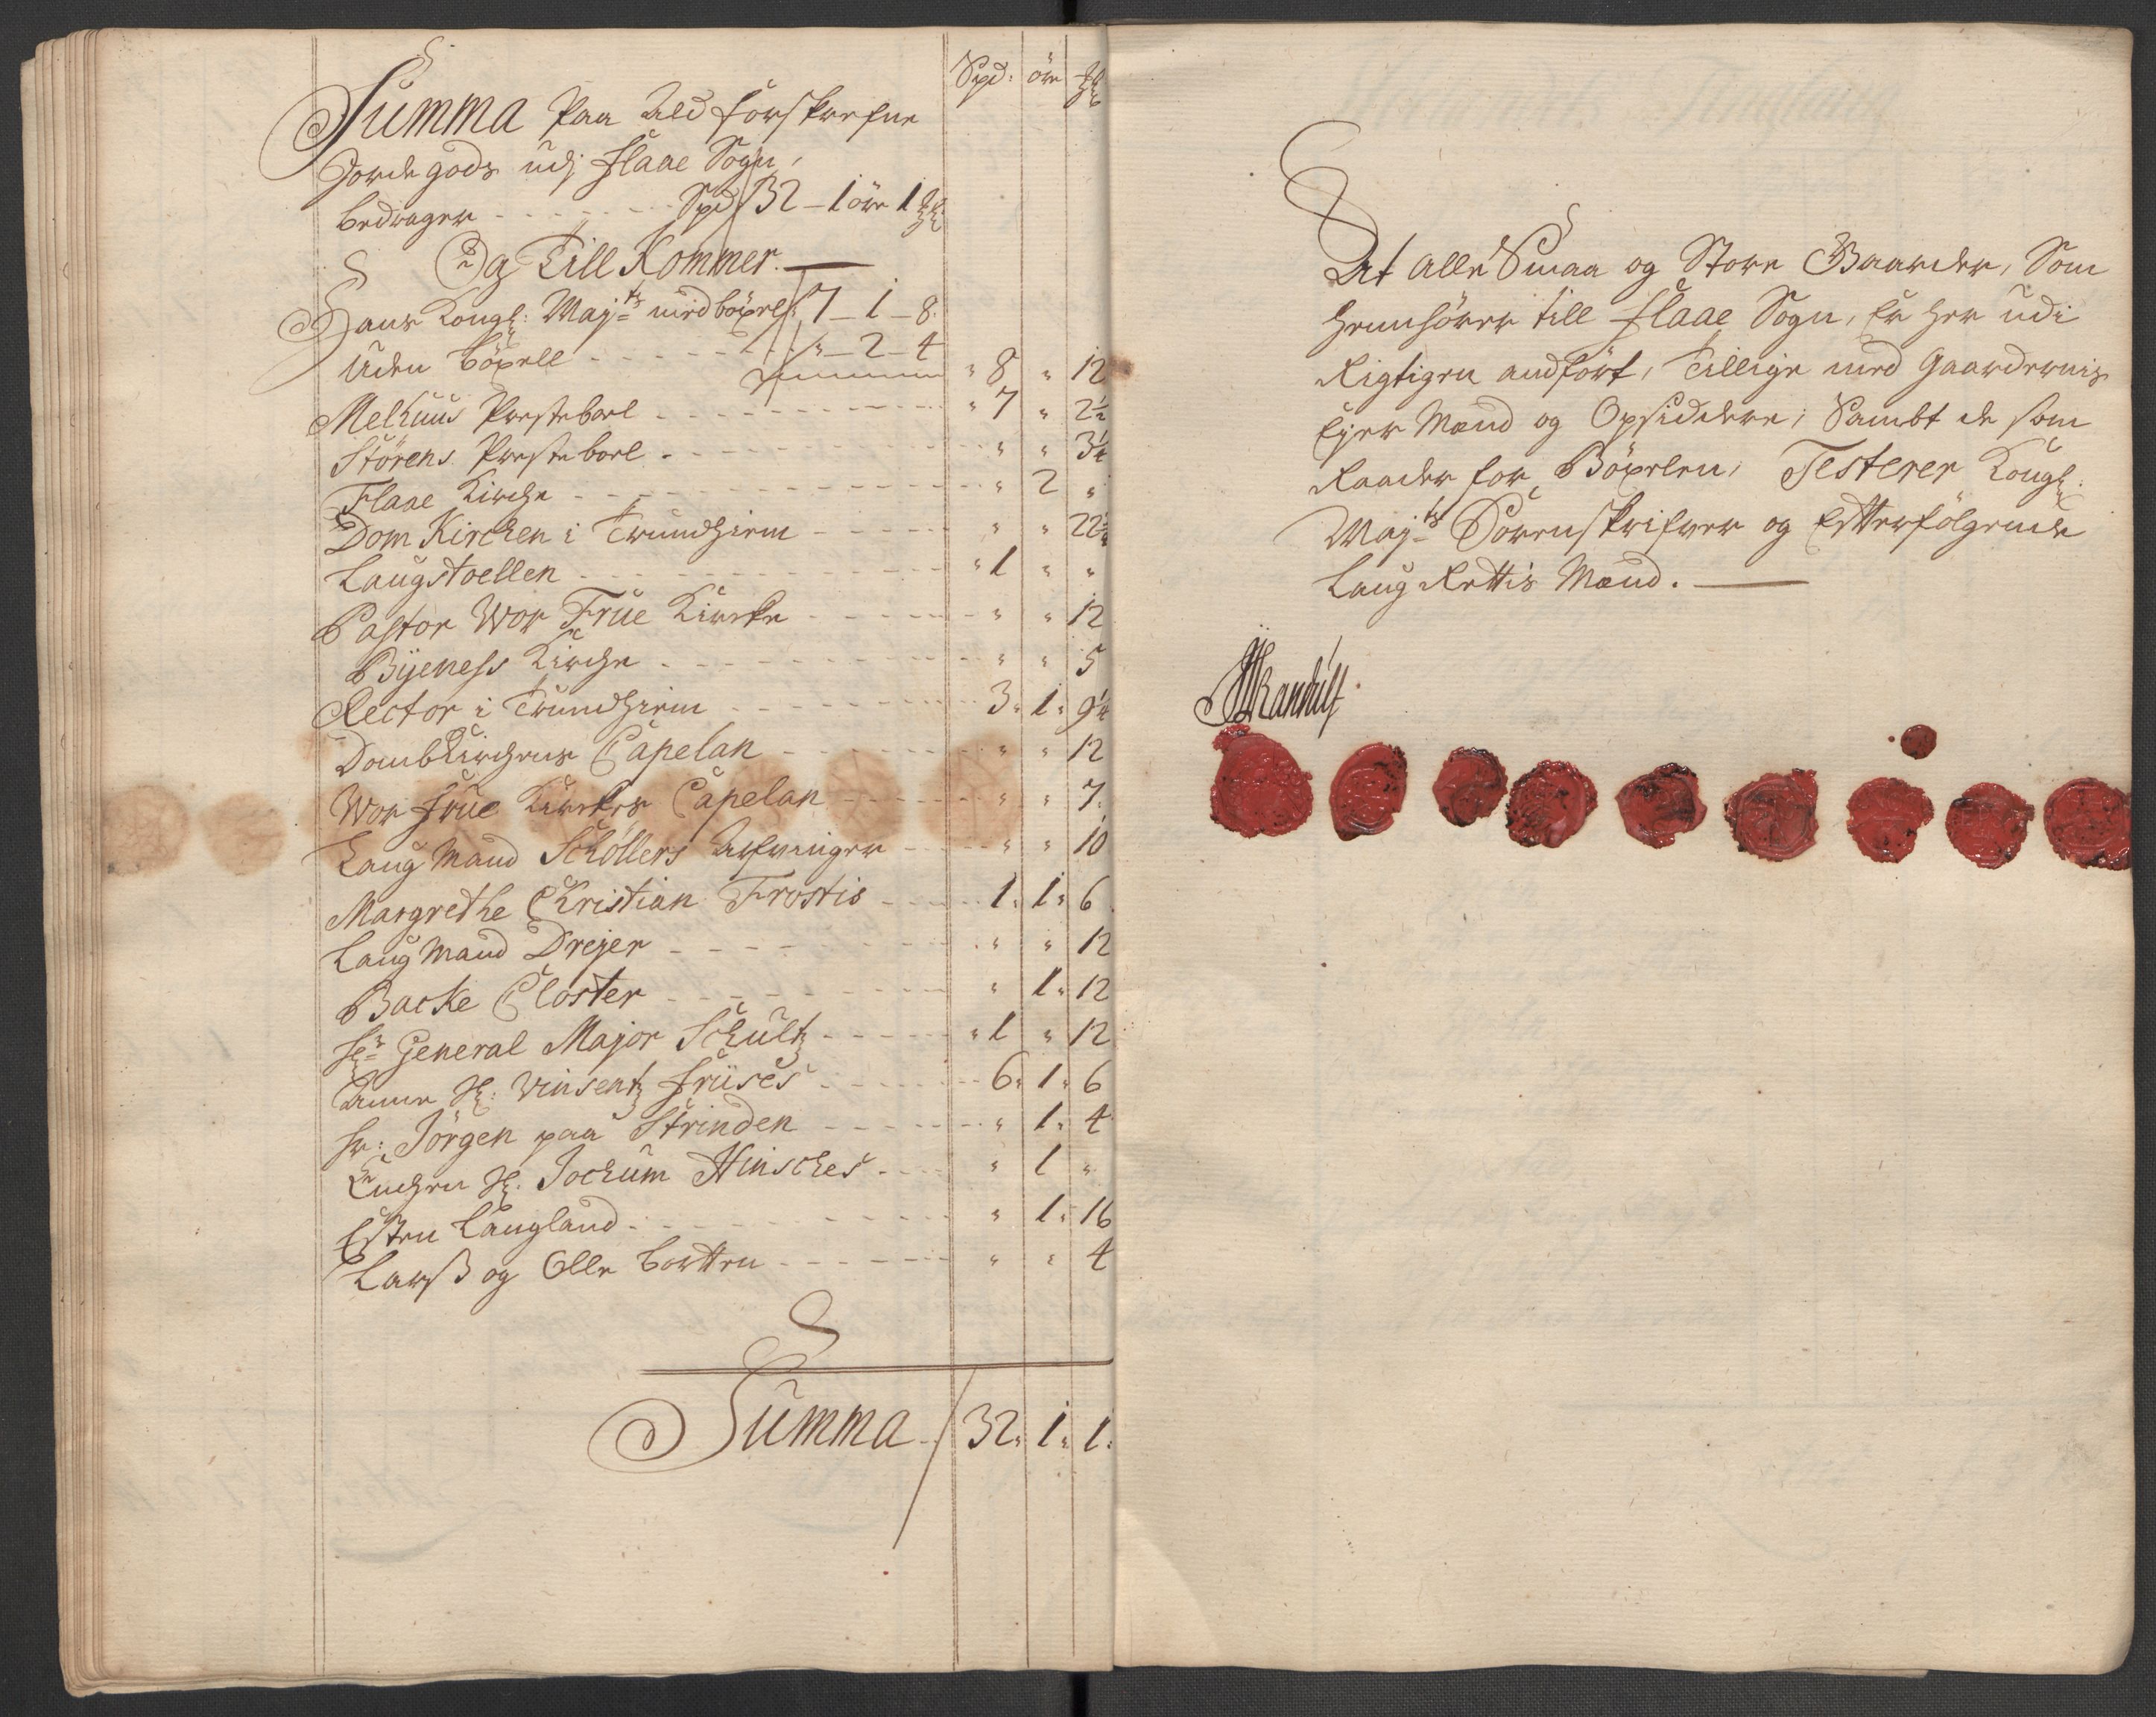 Spd: öre
Summa Paa Ald forskrefne
Jorde gods udj Flaae Sogn,
bedrager - - - Spd 32 - 1 öre 1
Og Till Kommer. —
Hans Kongl: Maj:ts med böxel: 7 - 1 - 8.
Uden böxell - - - " - 2 - 4 " 8 " 12
Melhuus Prestebol - - - " 7 " 2½
Störens Prestebol - - - " " 3¼
Flaae Kirche - - - " 2 "
Dom Kirchen i Trundhiem - - - " " 22½
Laugstoellen - - - " 1 " "
Pastor Wor Frue Kircke - - - " " 12
Byeness Kirche - - - " " 5
Rector i Trundhiem - - - 3. 1. 9¼
Dombkirchens Capelan - - - " " 12
Wor frue Kirckes Capelan - - - " " 7.
Laug Mand Schøllers Arfvinger - - - " " 10
Margrethe Christian Frostis - - - 1. 1. 6
Laug Mand Drejer - - - " " 12
Backe Closter - - - " 1. 12
Hr General Major Schultz - - - " 1 " 12
Anne Sl: Vinsentz friises - - - 6. 1. 6
Hr: Jörgen paa Strinden - - - " 1. 4
Enchen Sl. Jochum Hinsches - - - " 1 "
Esten Langland - - - " 1. 16
Larss og Olle bortten - - - " " 4
Summa - 32. 1. 1.
At alle Smaa og Store Gaarder, Som
henhörer till Flaae Sogn, Er her udi
Rigtigen andfört, Tillige med Gaardernis
Ejer Mænd og Opsiddere, Sambt de som
Raader for Böxelen, Testerer Kongl:
Maj:ts Sorenskrifver og Efterfölgende
Laug Rettis Mænd. —